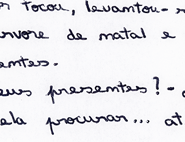 tocou, levantou-
rvore de natal e
entes.
eus presentes? -
ela procurar... at